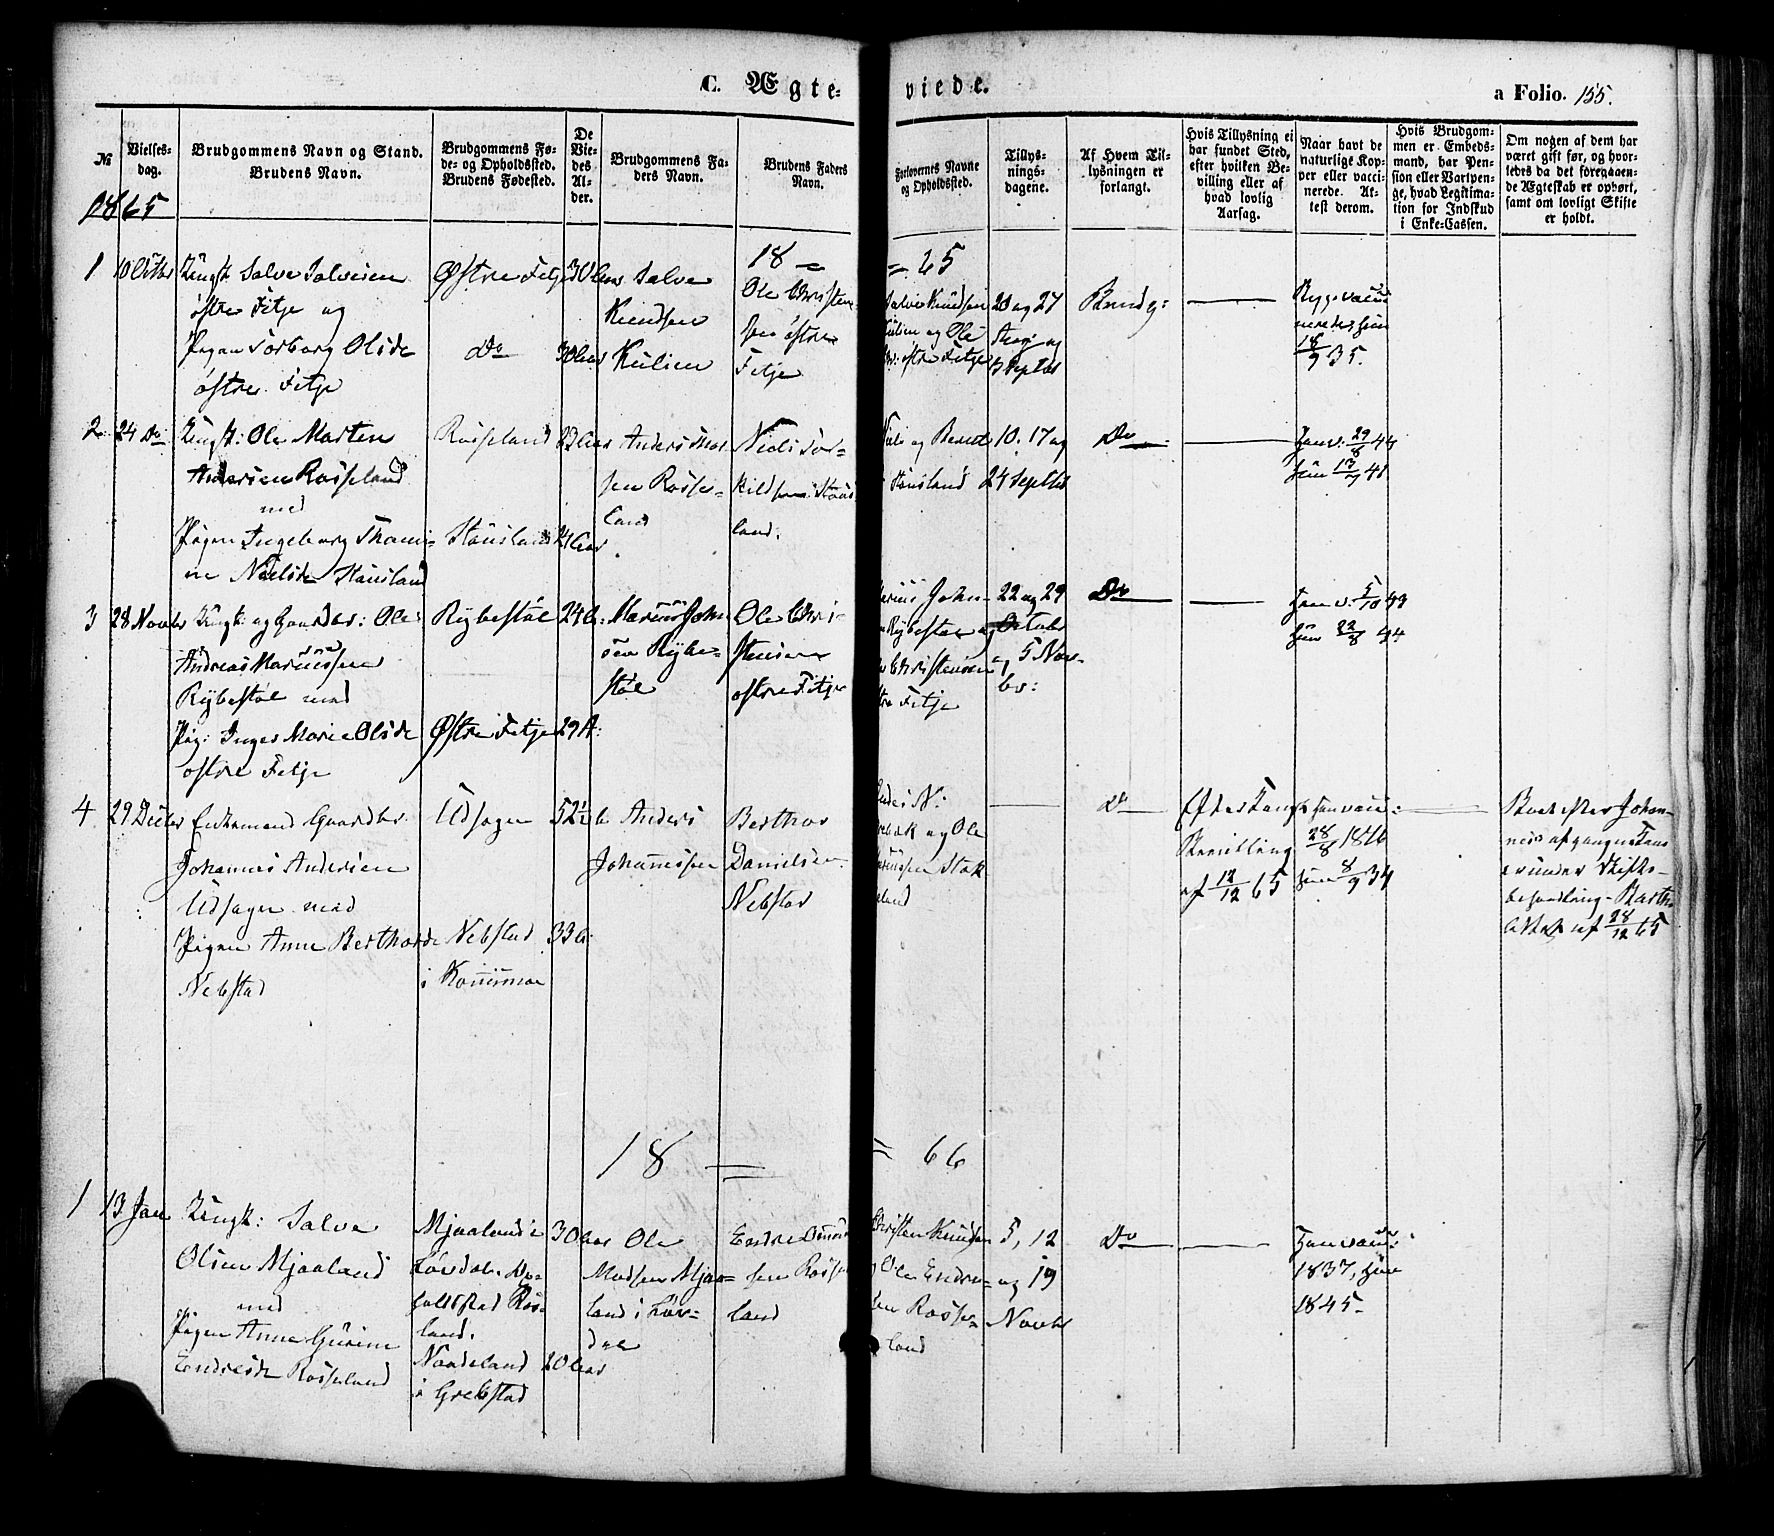 C. Ægte-
viede.
a Folio. 155.
№
Vielses-
dag.
Brudgommens Navn og Stand.
Brudens Navn.
Brudgommens Fø-
de- og Opholdssted.
Brudens Fødested.
De
Vie-
des
Al-
der.
Brudgommens Fa-
ders Navn.
Brudens Faders
Navn.
Forlovernes Navne
og Opholdssted.
Tillys-
nings-
dagene.
Af Hvem Til-
lysningen er
forlangt.
Hvis Tillysning ei
har fundet Sted,
efter hvilken Be-
villing eller af
hvad lovlig
Aarsag.
Naar havt de
naturlige Kop-
per eller vacci-
nerede. At-
test derom.
Hvis Brudgom-
men er Embeds-
mand, har Pen-
sion eller Vartpen-
ge, hvad Legitima-
tion for Indskud
i Enke-Cassen.
Om nogen af dem har
været gift før, og hvor-
ledes da det foregaaen-
de Ægteskab er ophørt,
samt om lovligt Skifte
er holdt.
1865
18 = = 65
1
10 Octbr
Ungk: Salve Salvesen
østre Fitje og
Pigen Torborg Olsdr
østre Fitje
Østre Fitje
Do
30 Aar
30 Aar
Salve
Knudsen
Kulien
Ole Christen-
sen østre
Fitje
Salve Knudsen
Kulien og Ole
østre Fitje
20 og 27
Aug: og
3 Septbr
Brudg:
18/9 35.
2
24 Do
Ungk: Ole Marten
Andersen Rosseland
med
Pigen Ingeborg Thomi-
ne Nielsdr Stausland
Rosseland
Stausland
23 Aar
21 Aar
Anders
sen Rosse-
land
Niels Tor-
kildsen Staus
land.
Niels og Berent
Stausland
10. 17 og
24 Septbr
Do
Han v. 29/8 44
Hun 13/9 48
3
28 Novbr
Ungk: og Gaardbr: Ole
Andreas Mariussen
Rybestøl med
Pig: Inger Marie Olsdr
østre Fitje
Rybestøl
Østre Fitje
24 A:
29 A:
Marius John
sen Rybe-
støl
Ole Chri-
stensen
østre Fitje
Marius John-
Rybestøl og
Christensen
østre Fitje
22 og 29
Octobr
og 5 Nov-
br:
Do
Han v. 5/10 43
Hun 22/8 44
4
29 Decbr
Enkemand Gaardbr.
Johannes Andersen
Udjager med
Pigen Anne Berthorsdr
Nebstad
Udjager
Nebstad
i Konsmoe
52 1/2
33 A:
Anders
Johannessen
Berthor
Danielsen
Nebstad
Anders N:
og Ole
Mariussen Stok
keland
Do
Efter Kongl:
Bevilling
af 12/12 65
Han vacc:
28/8 1816
Hun 8/9 34
Boet efter Johan-
nes's afgangne Kone
er under Skifte-
behandling
Attest af 28/12 65
18 = = 66
1
13 Jan
Ungk: Salve
Olsen Mjaaland
med
Pigen Anne Gurine
Endresdr Rosseland
Mjaaland i
Løvdal. Op-
holdssted Ros-
land.
Nordeland
i Grebstad
30 Aar
20 Aar
Ole
Madsen Mjaa-
land i Løv-
dal
Endre
sen Rosse
land
Christen Knudsen
og Ole Endre-
sen Rosse-
land
5, 12
og 19
Novbr
Do
Han vacc:
1837, Hun
1845.